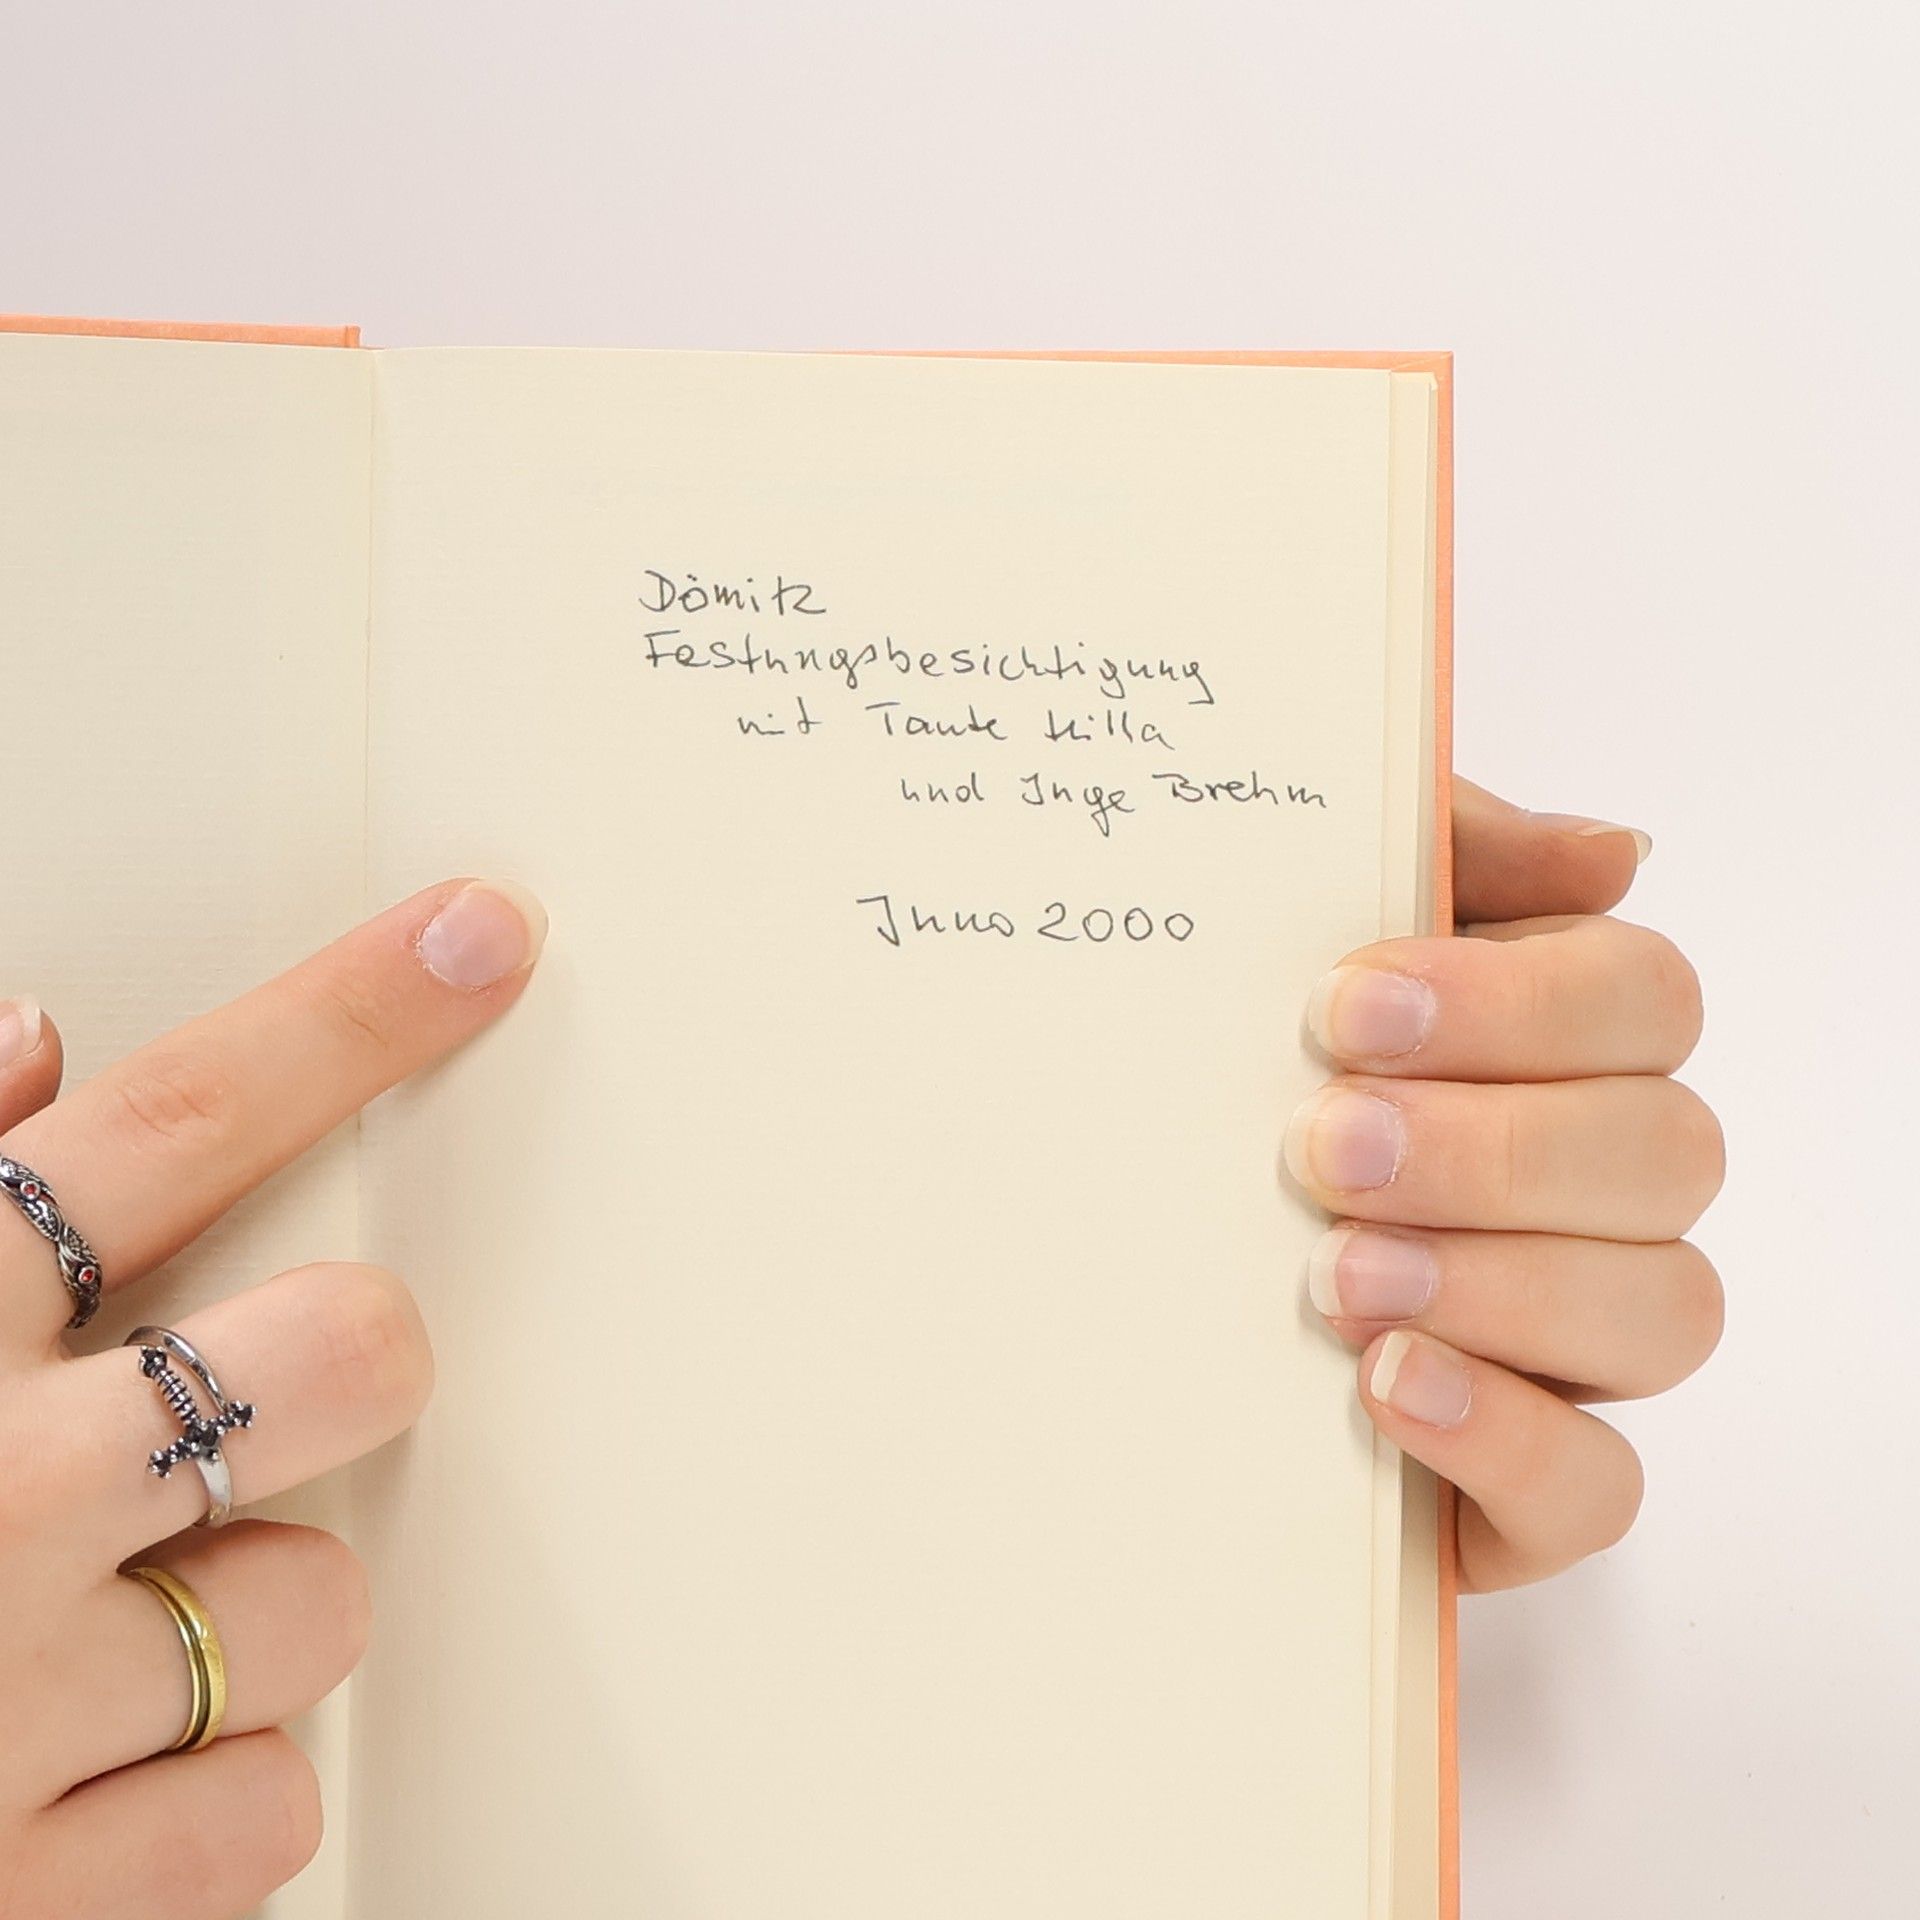 Dömitz
Festungsbesichtigung
mit Tante Hilla
und Inge Brehm
Juno 2000